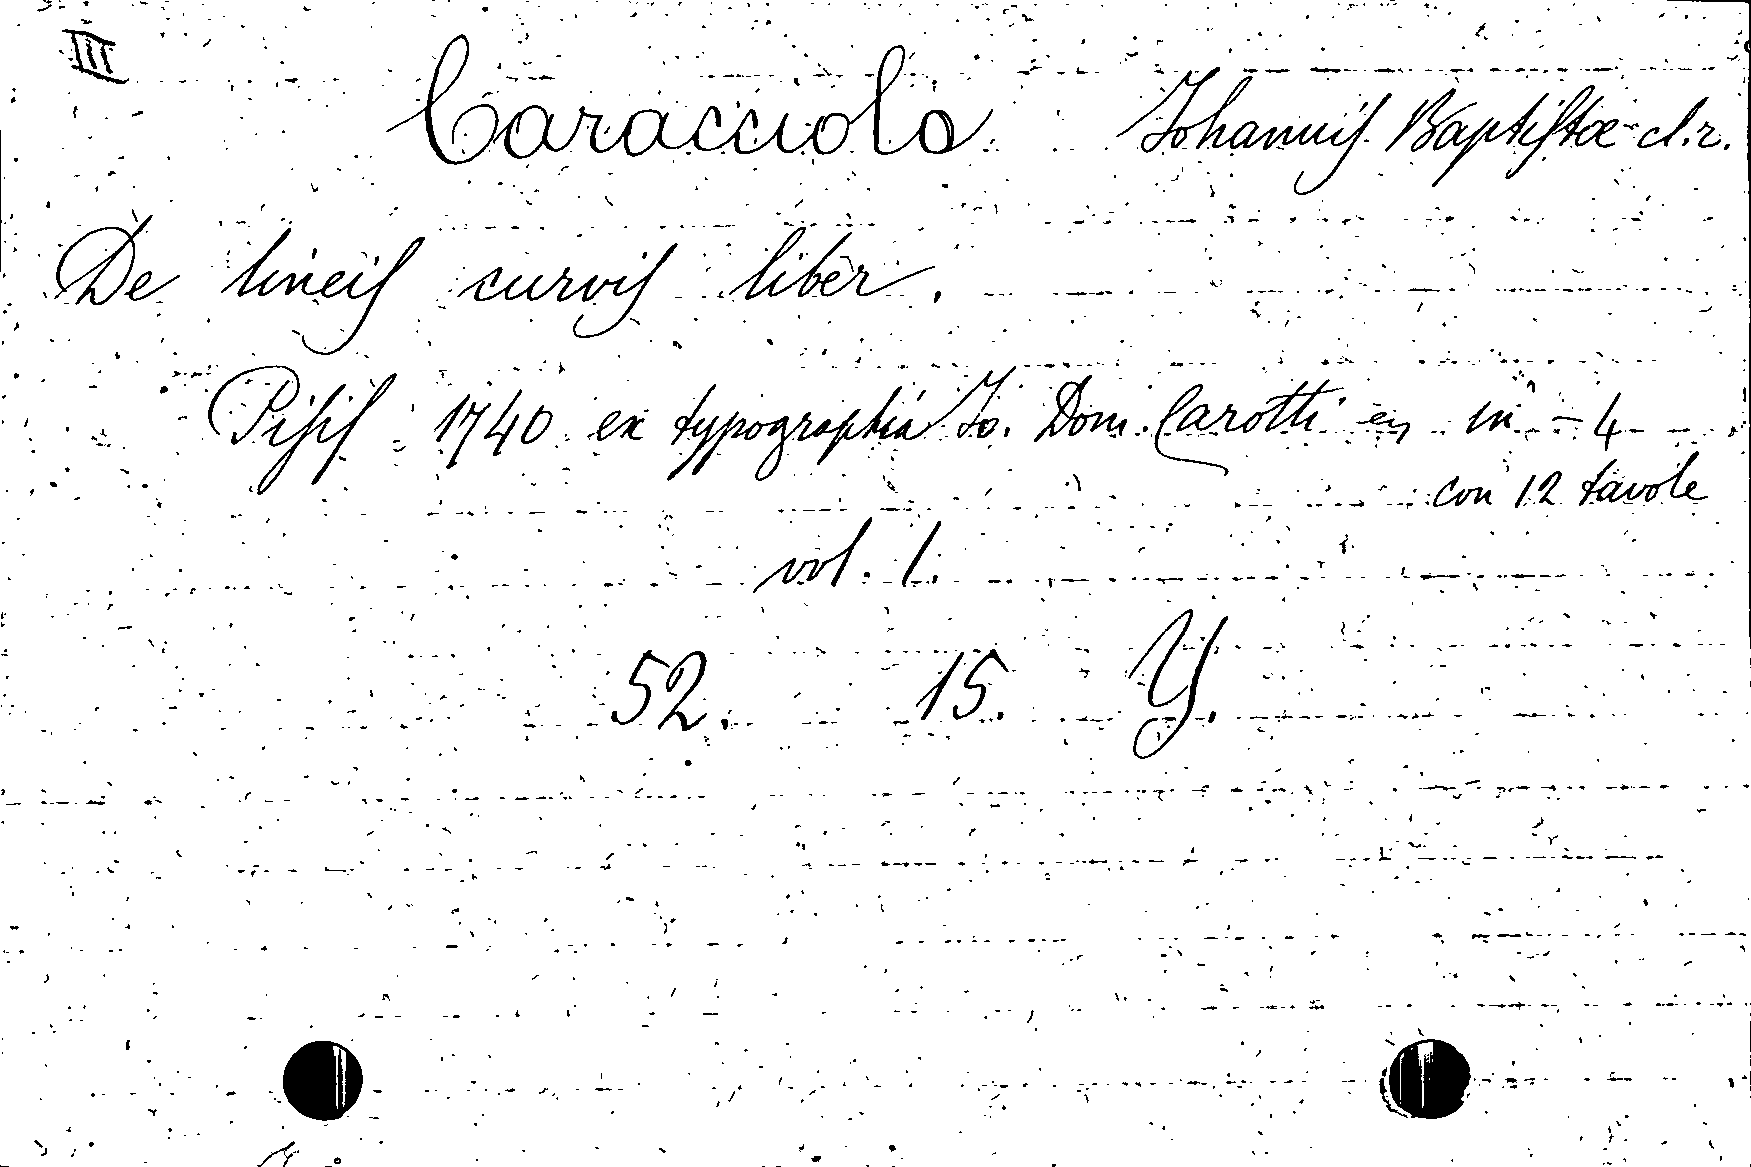 III
Caracciolo Johannis Baptistæ cl. r.
De lineis curvis liber.
Pisis 1740 ex typographia Jo. Dom. Carotti in - 4
con 12 tavole
vol. 1.
52. 15. Y.